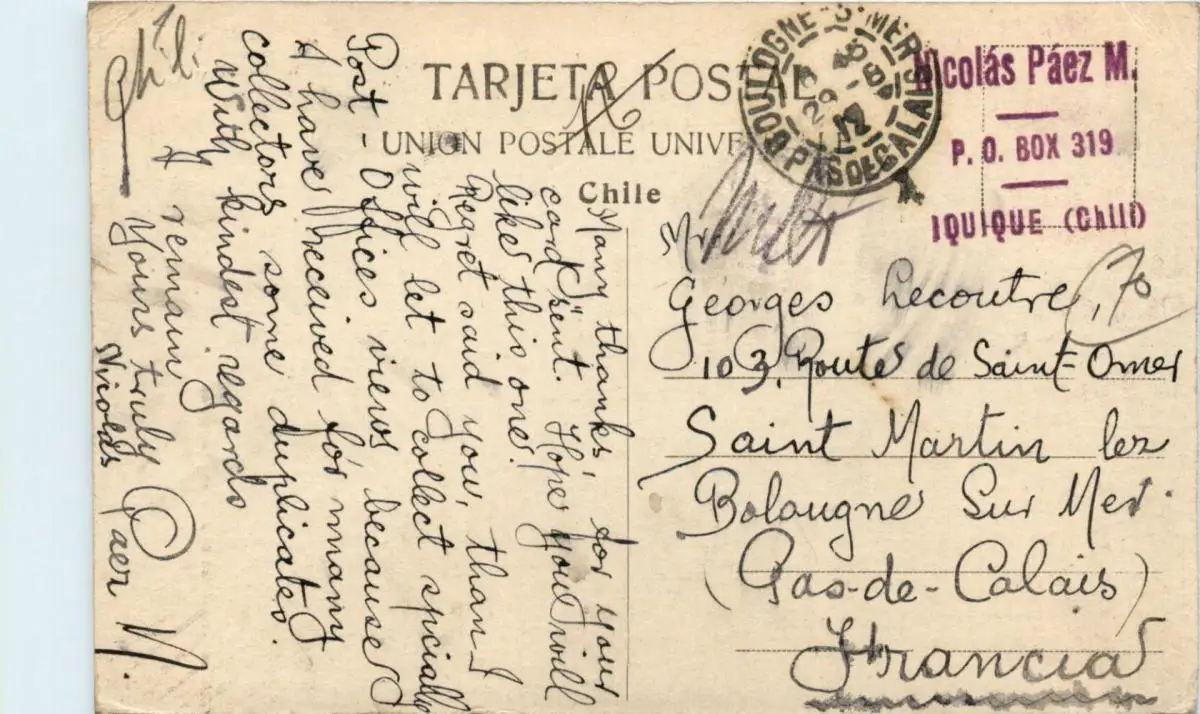 Chili
TARJETA POSTAL
UNION POSTALE UNIVE
Chile
BOULOGNE-S-MER
PAS DE CALAIS
Nicolás Páez M.
P. O. BOX 319
IQUIQUE (Chili)
Many thanks, for your
card sent. Hope you will
like this one!
Regret said you, than I
will let to collect spcially
Post-Offices views because
I have received for many
collectors some duplicates.
With kindest regards
I remain
Yours truly
Nicolás Paez M.
Mr.
Georges Lecoutre,
70
103, Route de Saint-Omer
Saint Martin lez
Bolougne Sur Mer.
(Pas-de-Calais)
Francia